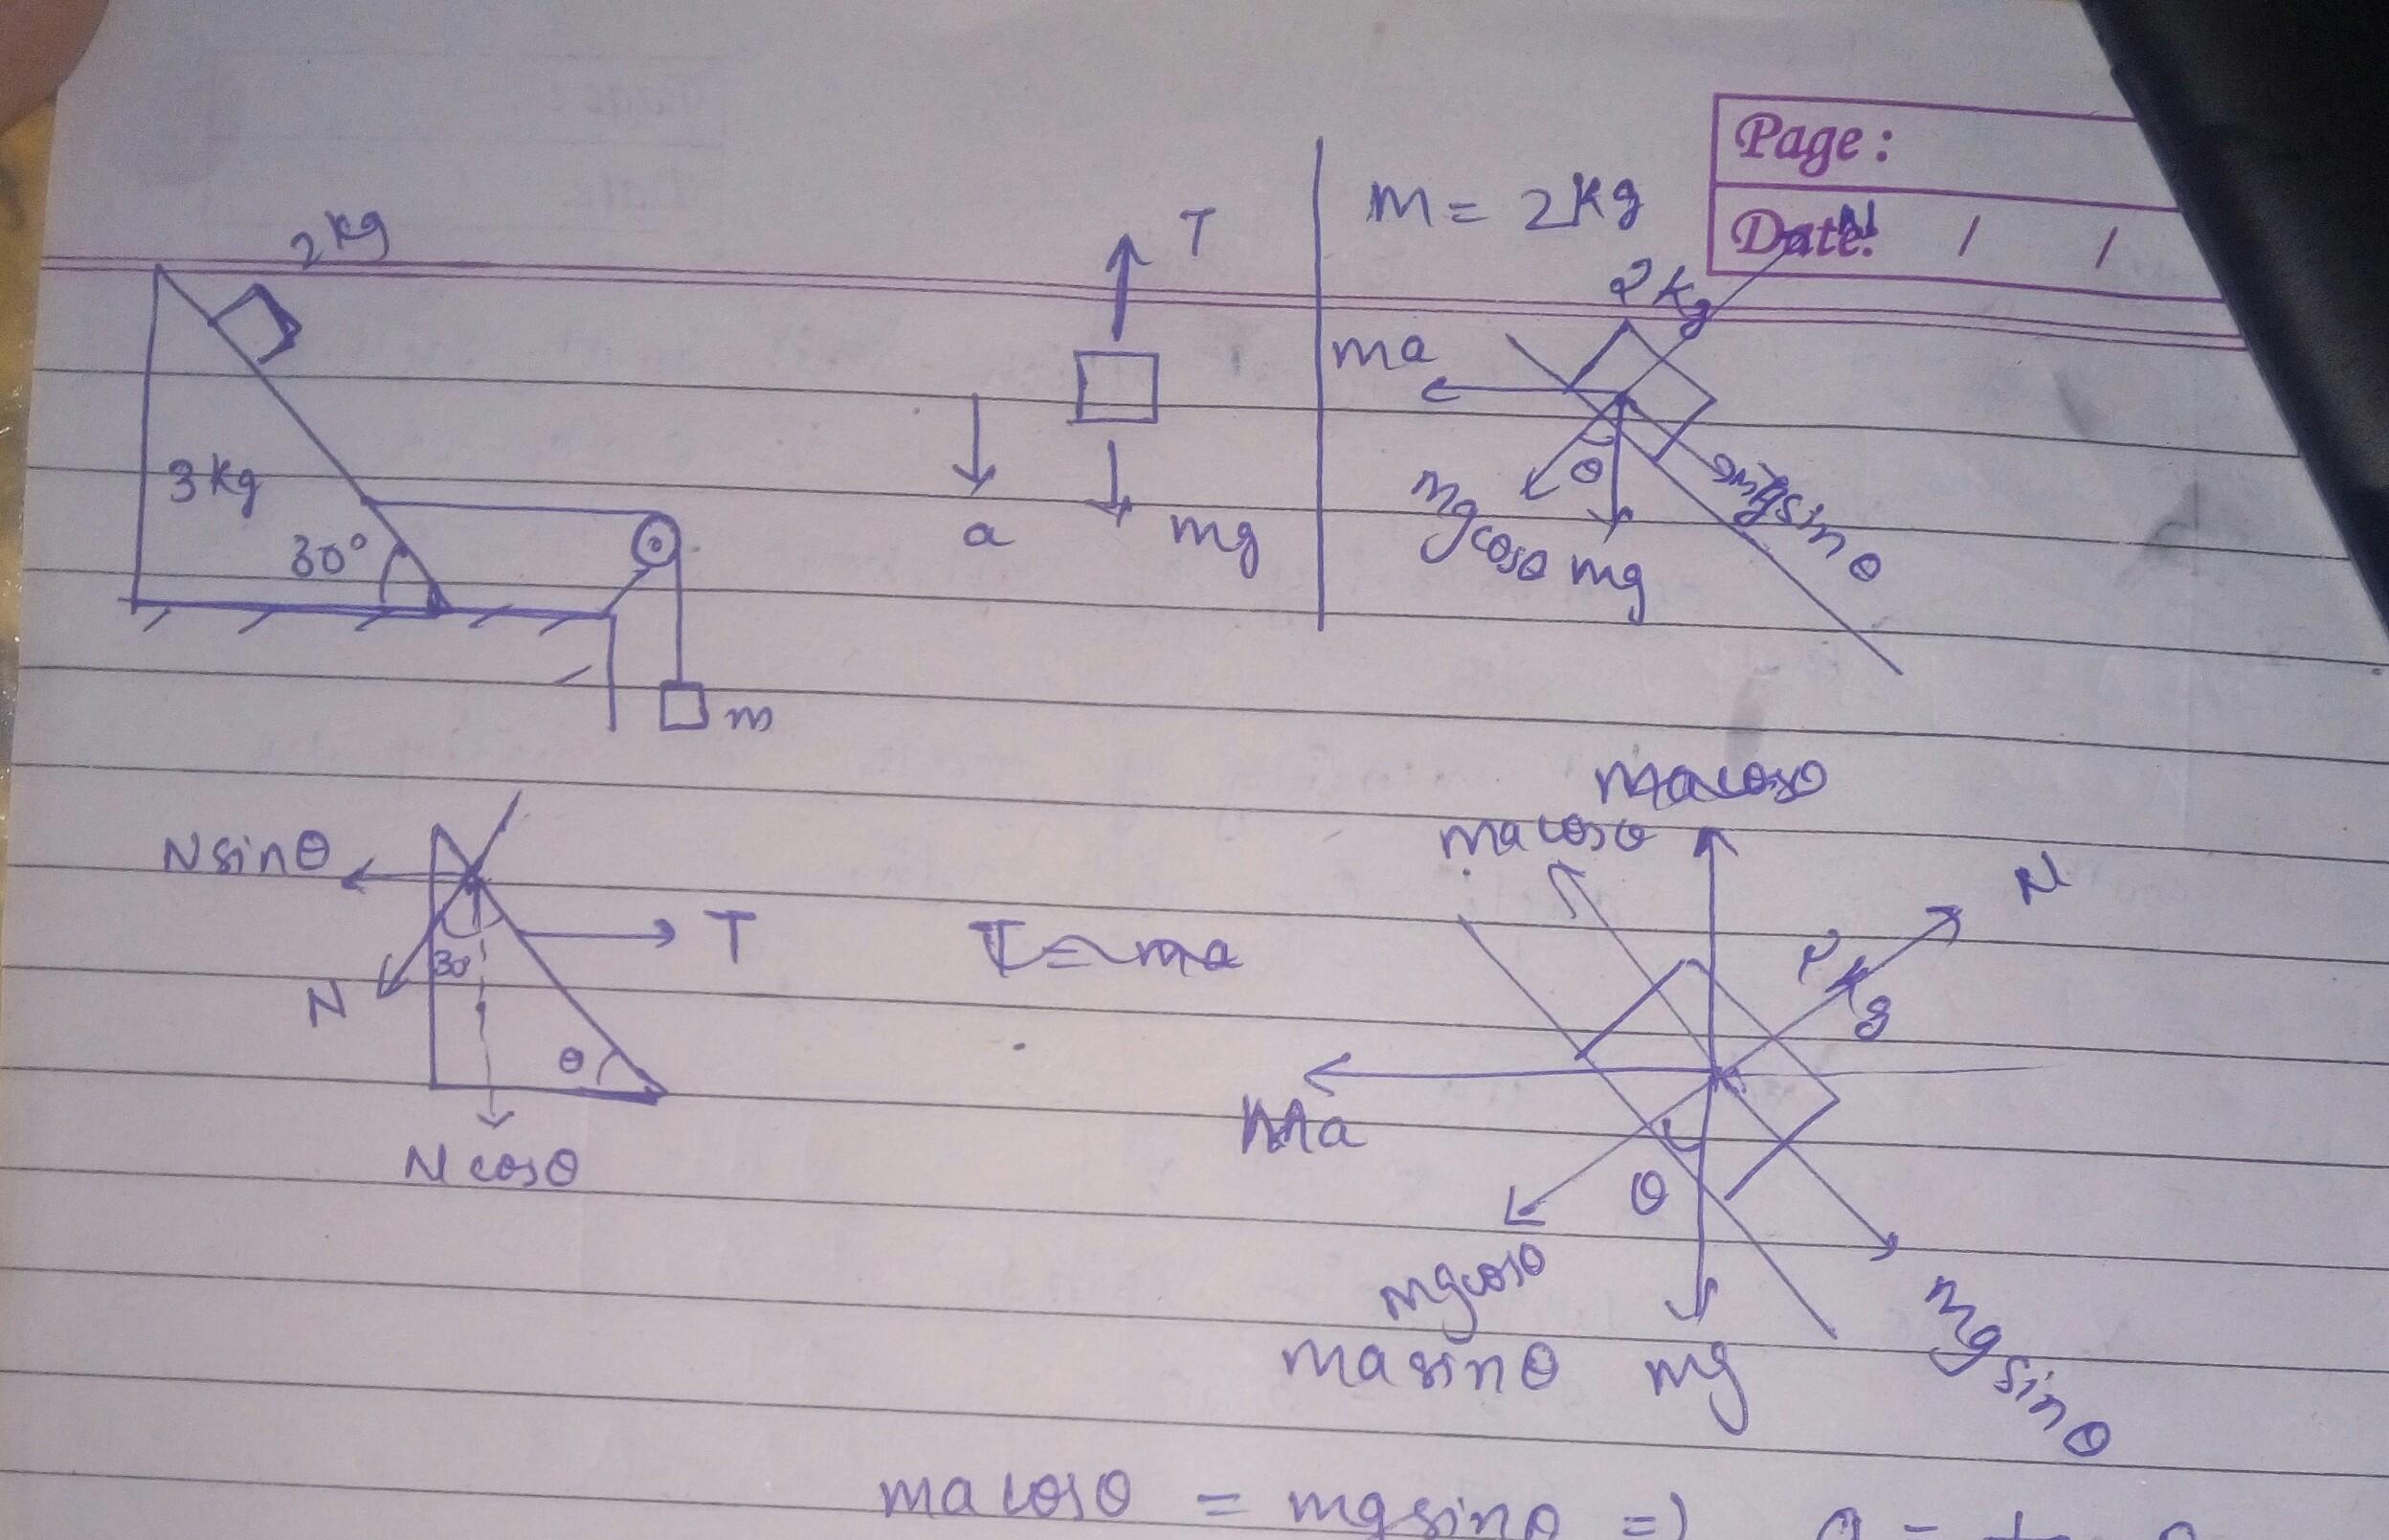 Page :
Date: / /
2 kg
3 kg
30°
m
T
a
mg
m = 2 kg
2 kg
N
ma
mg cosθ
θ
mg
mg sinθ
N sinθ
T
30
N
θ
N cosθ
T = ma
ma cosθ
ma cosθ
N
2 kg
ma
θ
mg cosθ
ma sinθ
mg
mg sinθ
ma cosθ = mg sinθ =)